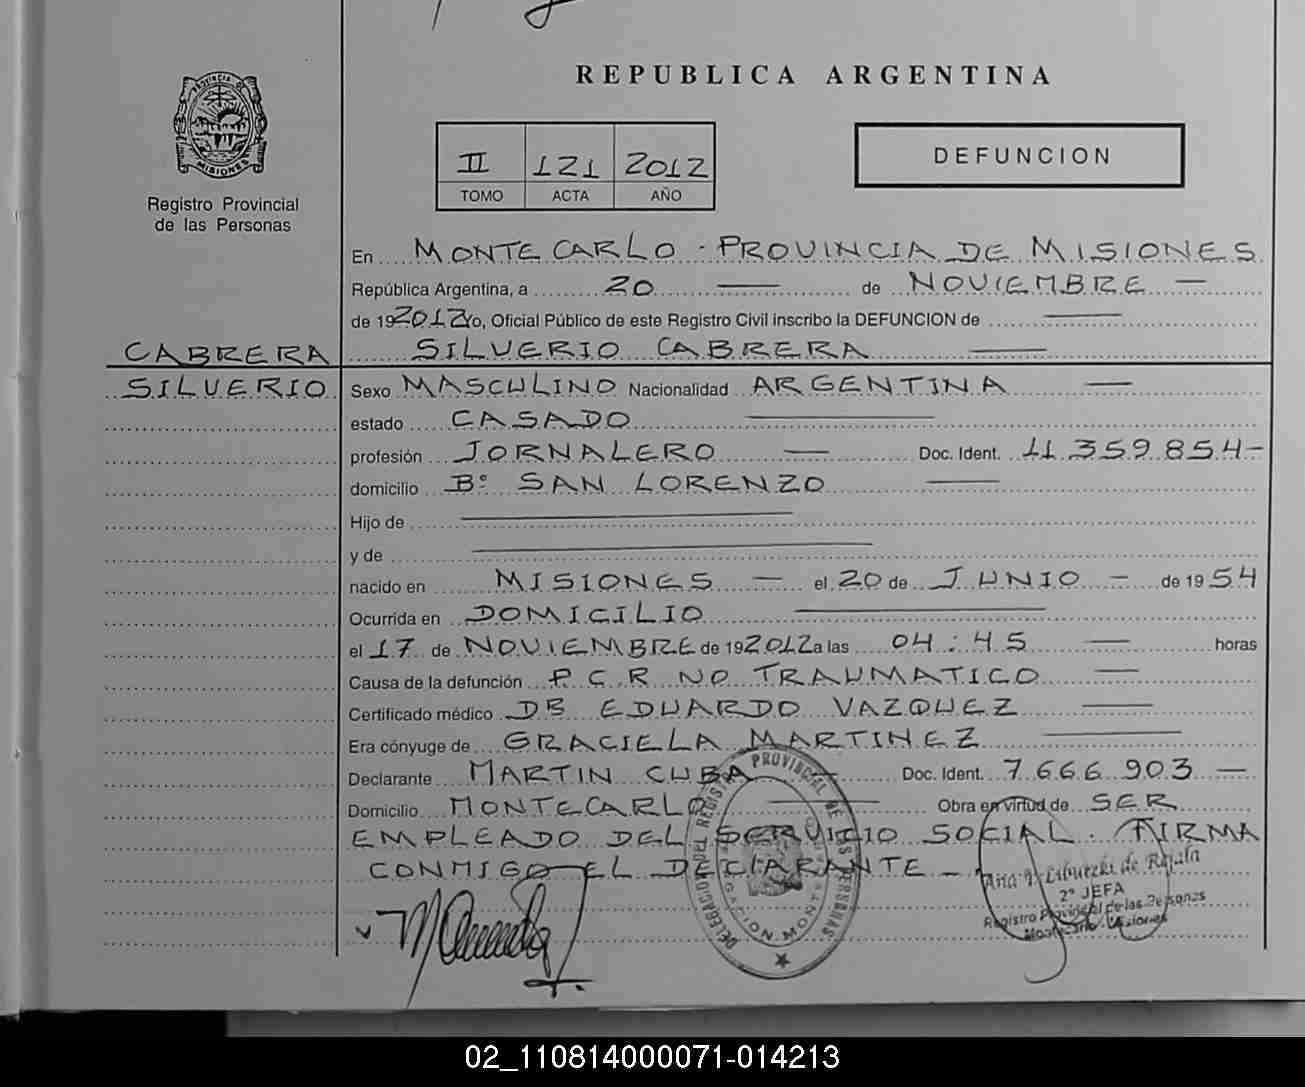 REPUBLICA ARGENTINA
PROVINCIA DE
MISIONES
Registro Provincial
de las Personas
II 121 2012
TOMO ACTA AÑO
DEFUNCION
En MONTECARLO - PROVINCIA DE MISIONES
República Argentina, a 20 — de NOVIEMBRE —
de 192012 Yo, Oficial Público de este Registro Civil inscribo la DEFUNCION de —
CABRERA SILVERIO CABRERA —
SILVERIO Sexo MASCULINO Nacionalidad ARGENTINA —
estado CASADO —
profesión JORNALERO — Doc. Ident. 11.359.854-
domicilio Bº SAN LORENZO —
Hijo de —
y de —
nacido en MISIONES — el 20 de JUNIO — de 1954
Ocurrida en DOMICILIO —
el 17 de NOVIEMBRE de 192012 a las 04:45 — horas
Causa de la defunción P.C.R NO TRAUMATICO —
Certificado médico DR EDUARDO VAZQUEZ —
Era cónyuge de GRACIELA MARTINEZ —
Declarante MARTIN CUBA — Doc. Ident. 7.666.903 —
Domicilio MONTECARLO — Obra en virtud de SER
EMPLEADO DEL SERVICIO SOCIAL. FIRMA
CONMIGO EL DECLARANTE —
DELEGACION DEL REGISTRO PROVINCIAL DE LAS PERSONAS
2º JEFA
Registro Provincial de las Personas
Montecarlo - Misiones
02_110814000071-014213